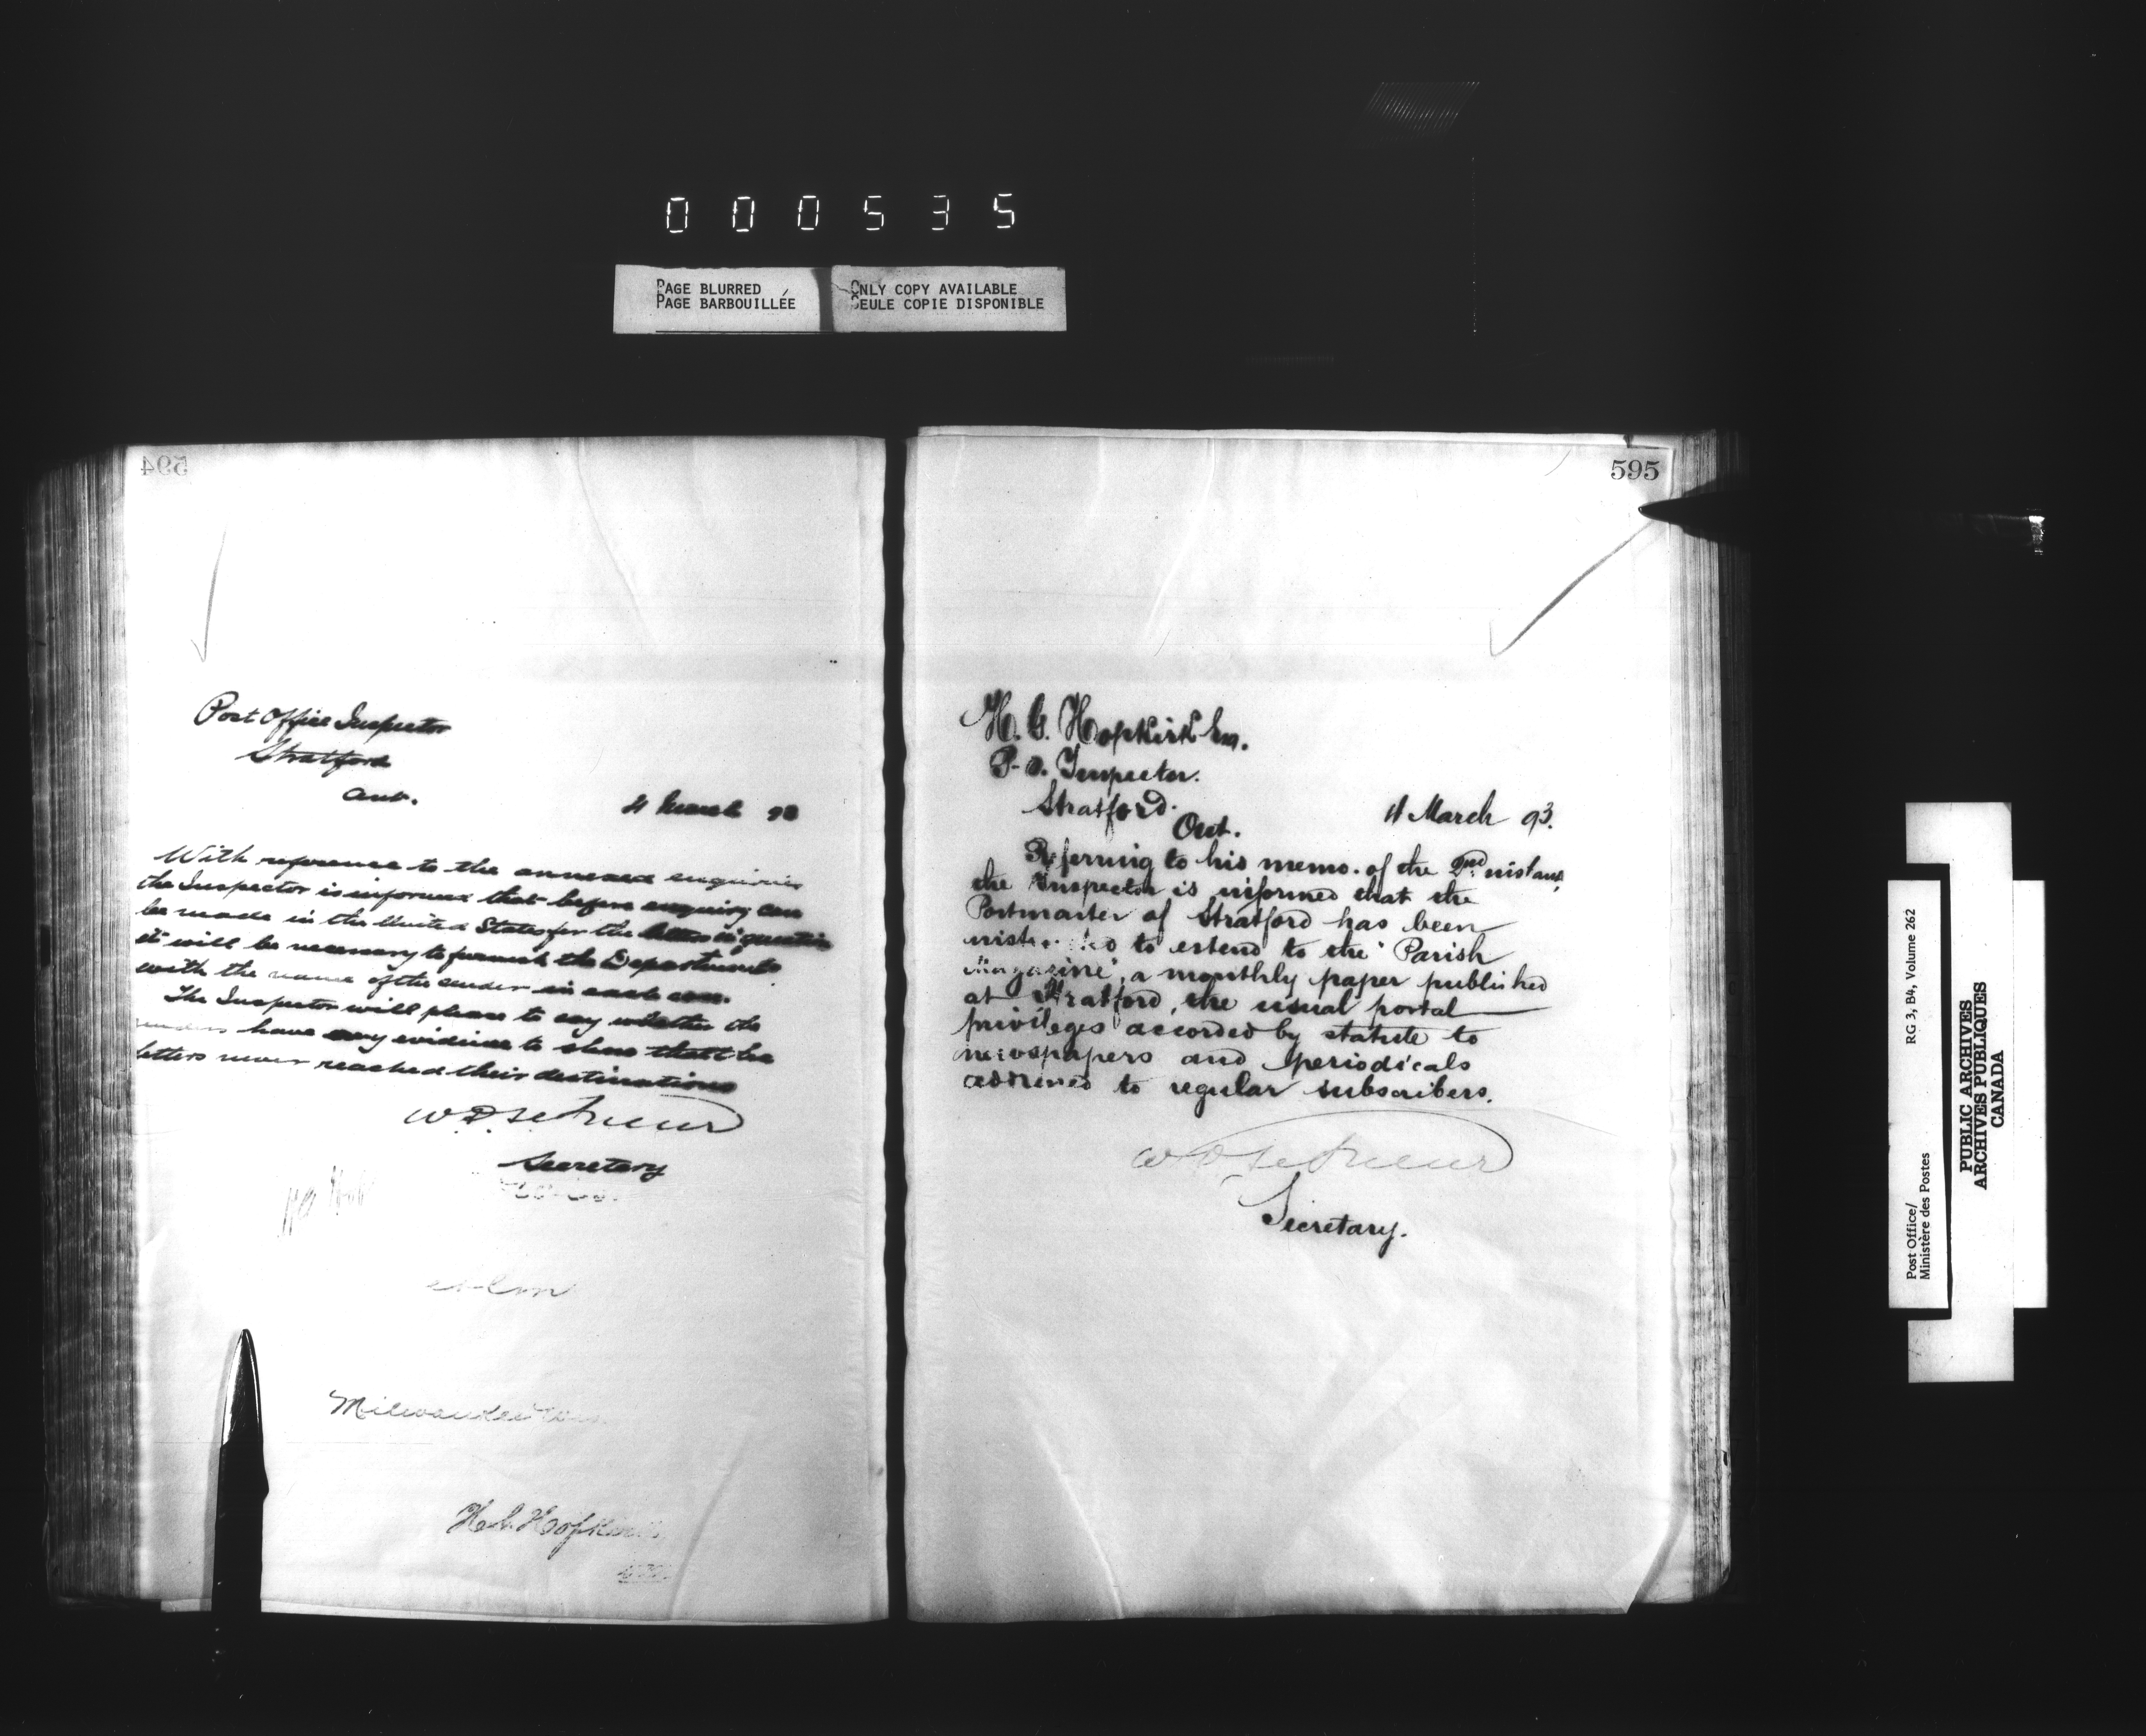 000535
PAGE BLURRED
PAGE BARBOUILLÉE
ONLY COPY AVAILABLE
SEULE COPIE DISPONIBLE
594
Post Office Inspector
Stratford
Ont.
11 March 93
With reference to the annexed enquiries
the Inspector is informed that before enquiry can
be made in the United States for the letters in question
it will be necessary to furnish the Department
with the name of the sender in each case.
The Inspector will please to say whether the
senders have any evidence to show that the
letters never reached their destinations
W.D. LeSueur
Secretary
Milwaukee Wis
H.G. Hopkirk
595
H. G. Hopkirk Esq.
P.O. Inspector.
Stratford.
Ont.
11 March 93.
Referring to his memo. of the 2nd instant,
the Inspector is informed that the
Postmaster of Stratford has been
instructed to extend to the "Parish
Magazine", a monthly paper published
at Stratford, the usual postal
privileges accorded by statute to
newspapers and periodicals
addressed to regular subscribers.
W D LeSueur
Secretary.
Post Office/
Ministère des Postes
RG 3, B4, Volume 262
PUBLIC ARCHIVES
ARCHIVES PUBLIQUES
CANADA